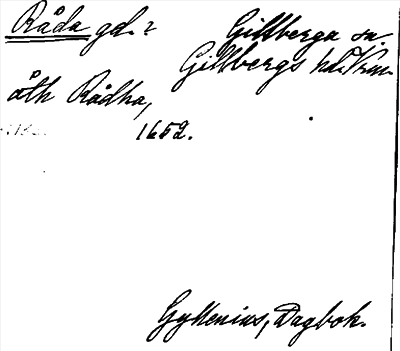 Råda gd. 2 Gillberga sn.
Gillbergs hd. Vrm.
åth Rådha,
1652.
Gyllenius, Dagbok.